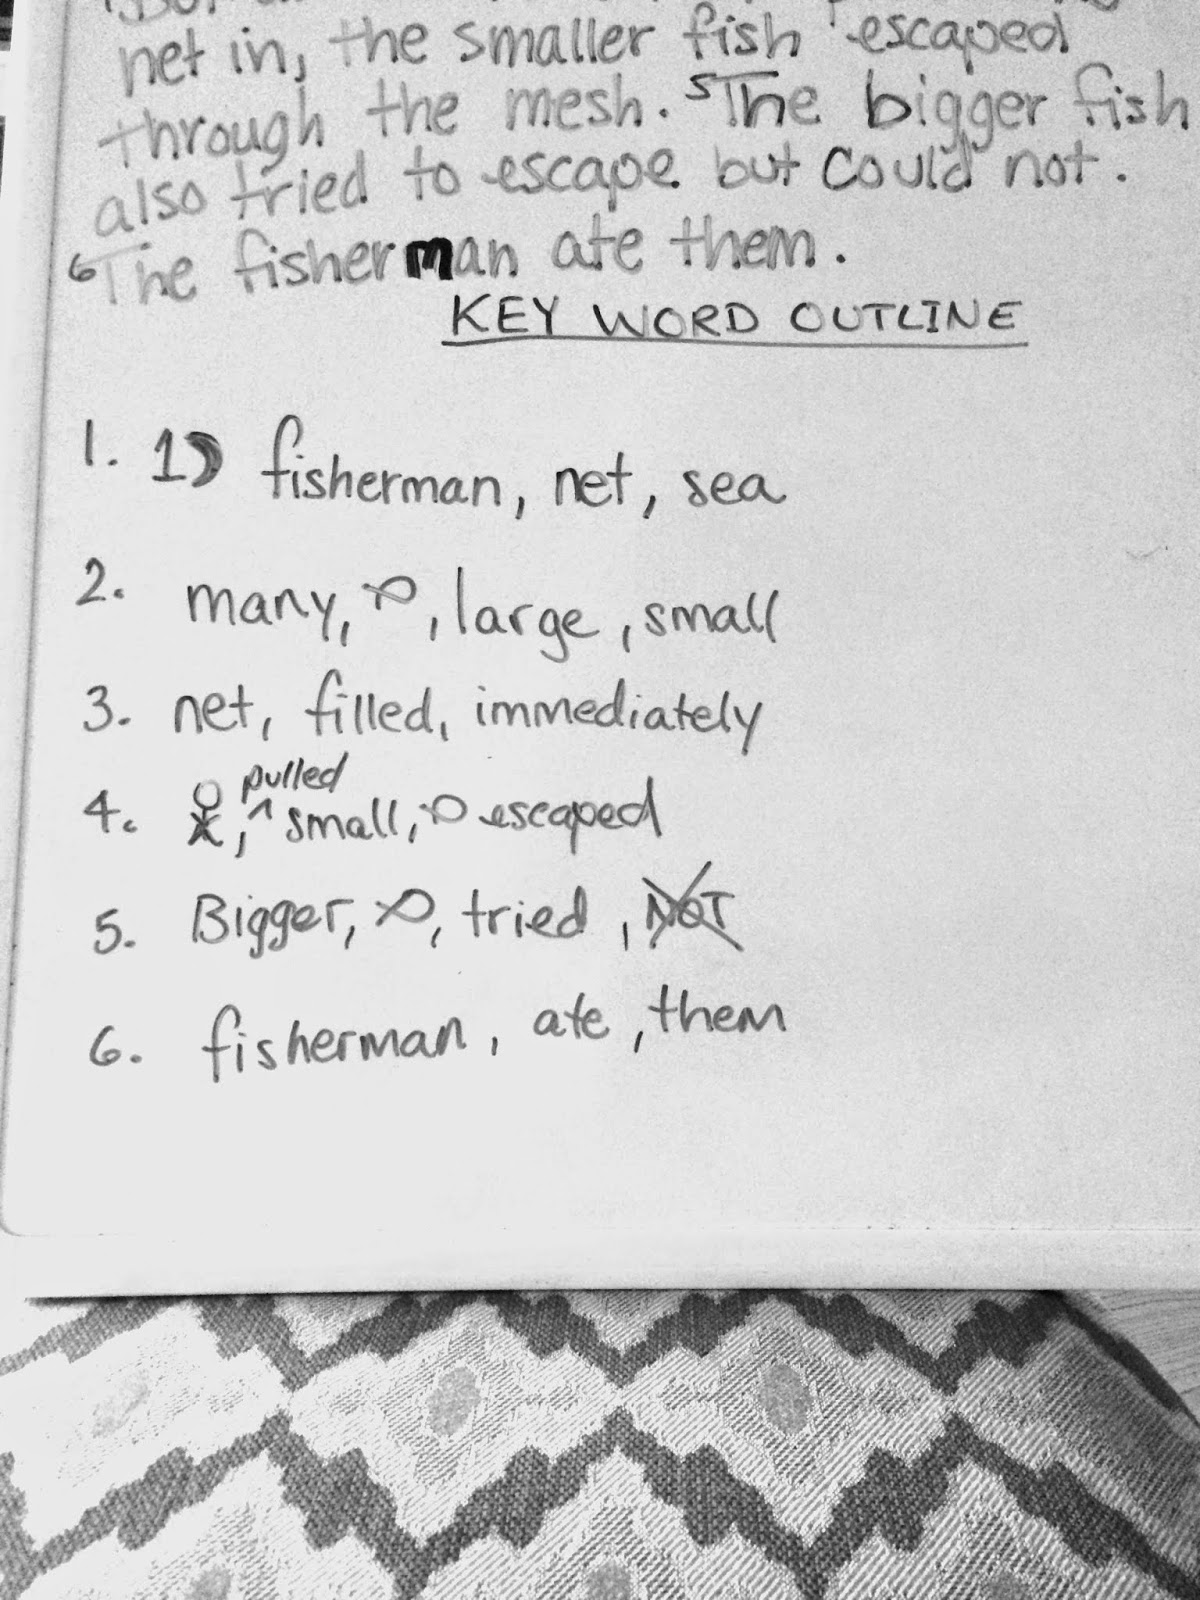 net in, the smaller fish escaped
through the mesh. 5The bigger fish
also tried to escape but could not.
6The fisherman ate them.
KEY WORD OUTLINE
1. 1) fisherman, net, sea
2. many, , large, small
3. net, filled, immediately
pulled
4. , ^ small, escaped
5. Bigger, , tried, NOT
6. fisherman, ate, them